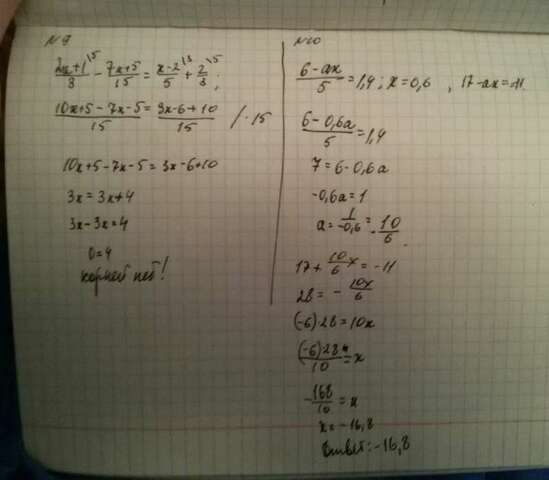 №9
(2x+1)/3 \5 - (7x+5)/15 = (x-2)/5 \3 + 2/3 \5 ;
(10x+5-7x-5)/15 = (3x-6+10)/15 /·15
10x+5-7x-5=3x-6+10
3x=3x+4
3x-3x=4
0=4
корней нет!
№10
(6-ax)/5=1,4; x=0,6, 17-ax=-11
(6-0,6a)/5=1,4
7=6-0,6a
-0,6a=1
a=1/-0,6=-10/6.
17+10/6 x=-11
28=-10x/6
(-6)·28=10x
(-6)·28/10=x
-168/10=x
x=-16,8
Ответ:-16,8